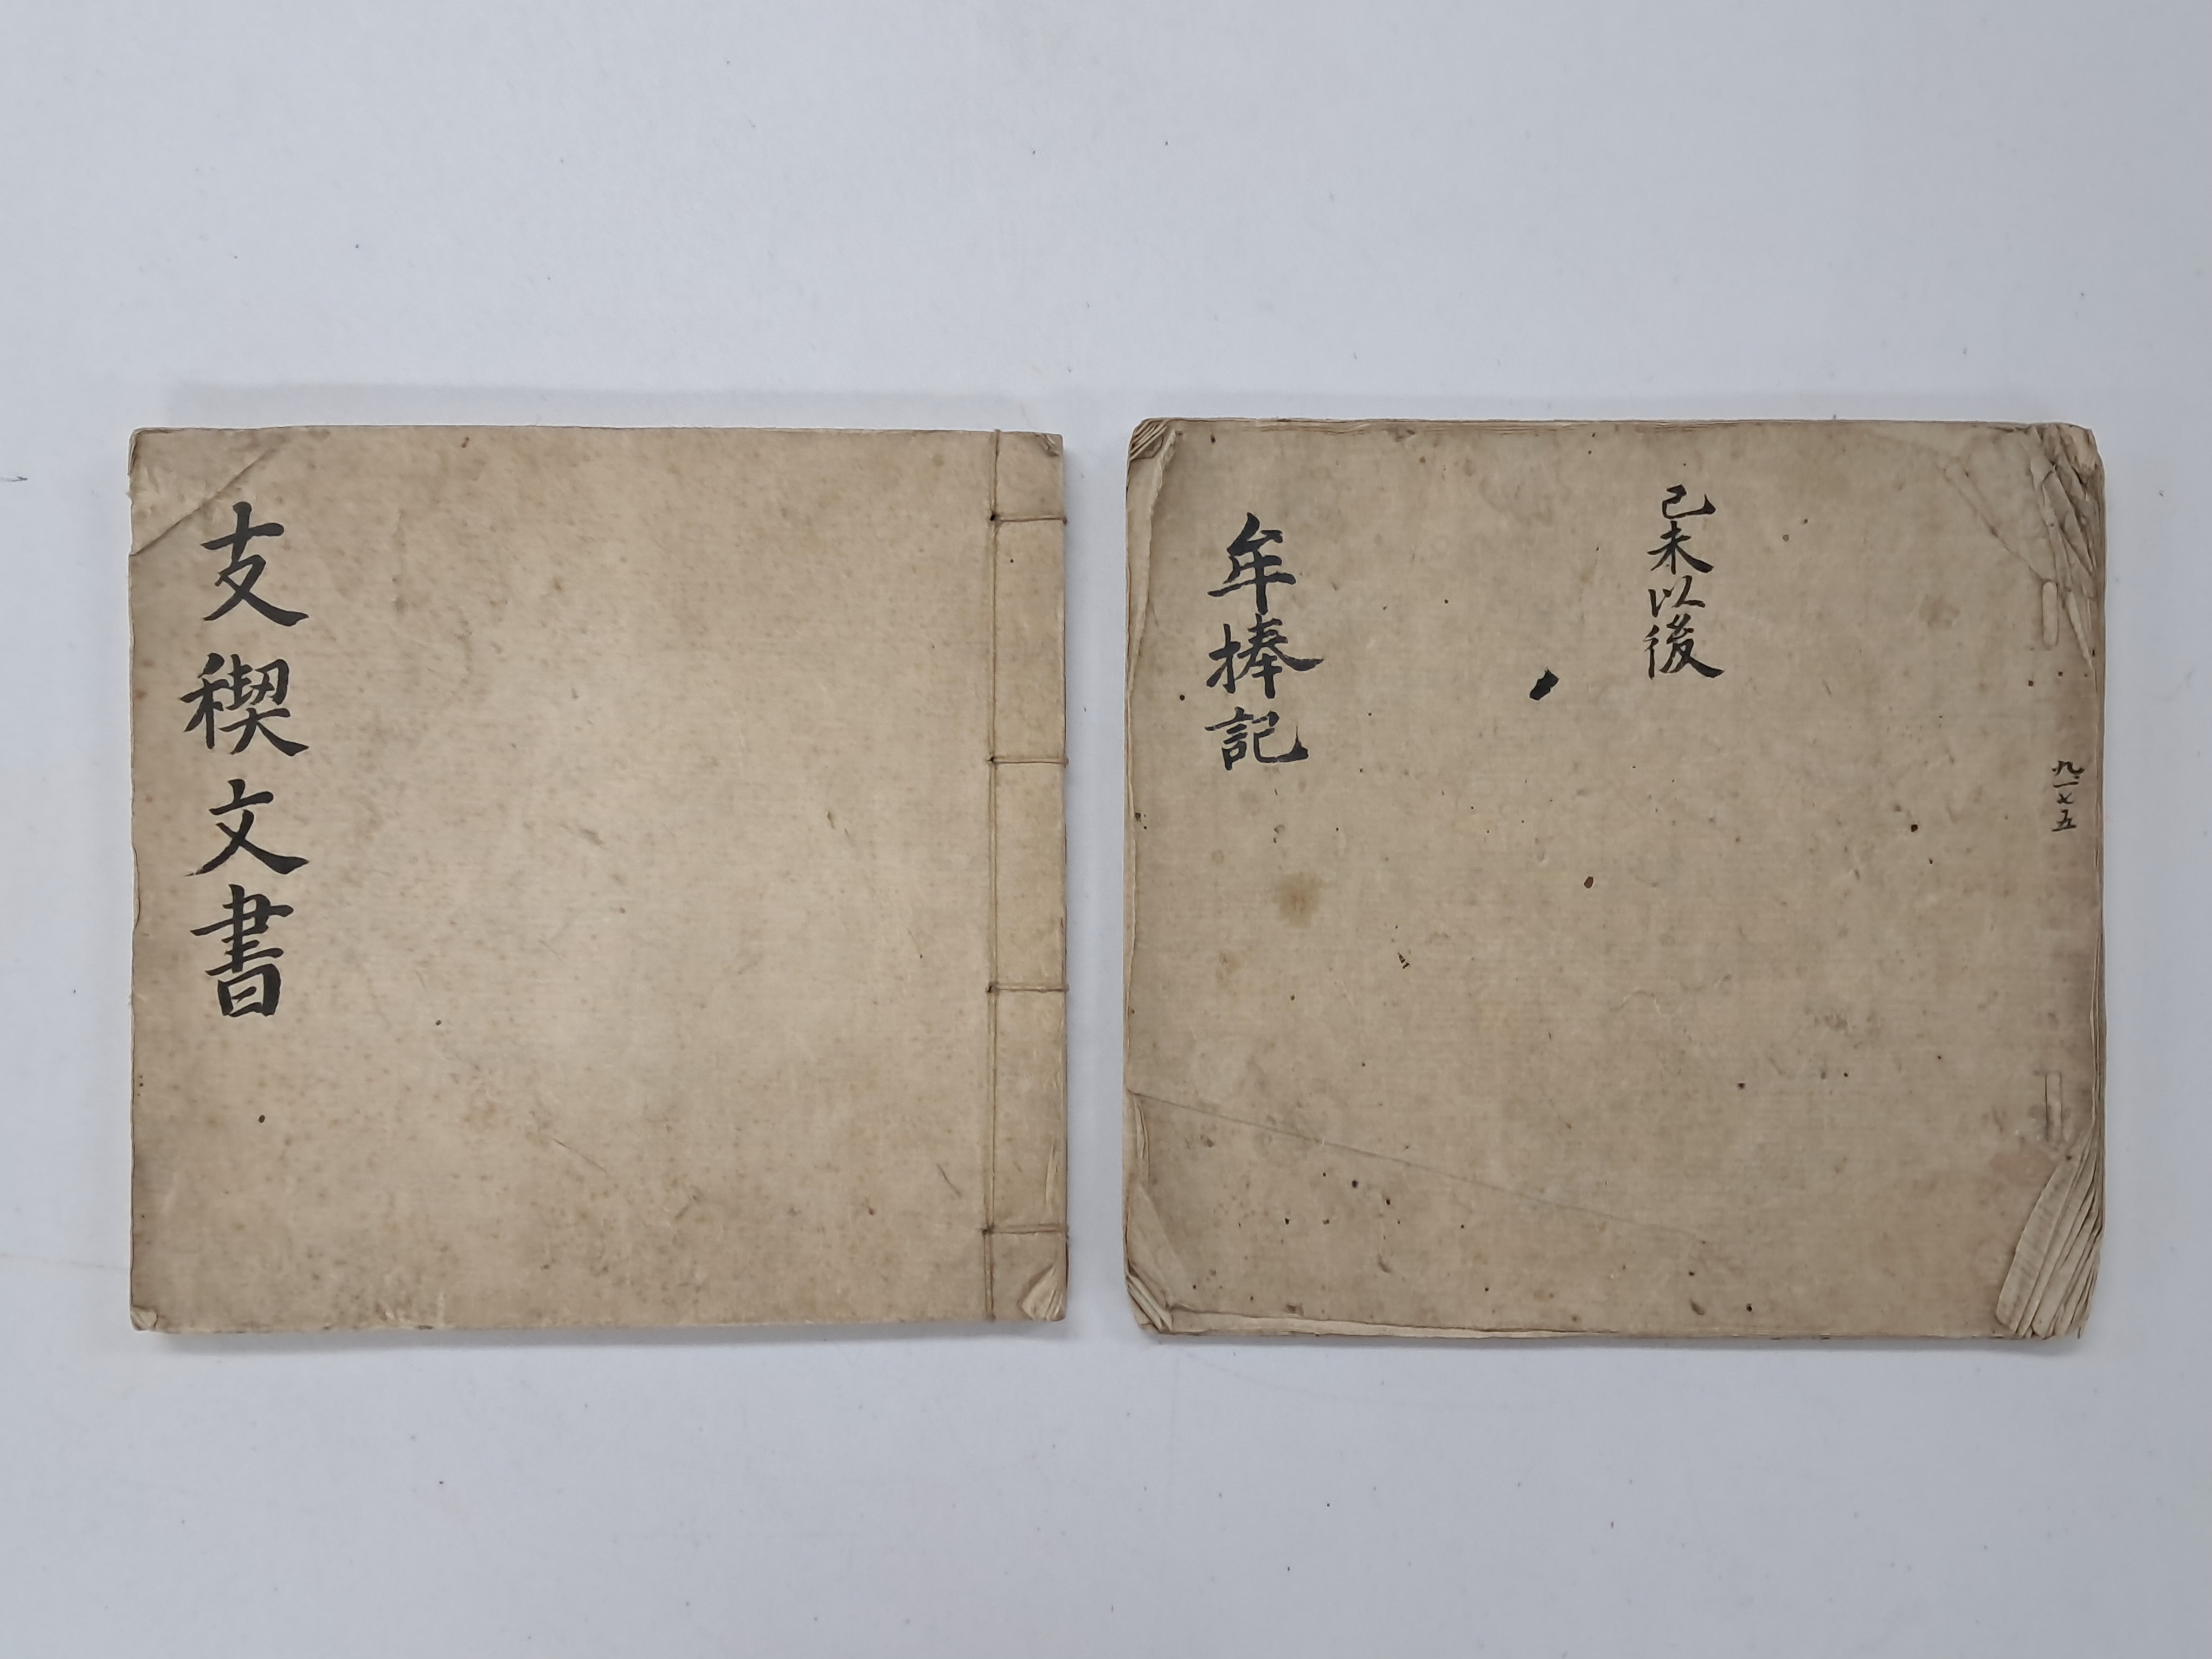 支稧文書
九一七五
己未以後
牟捧記